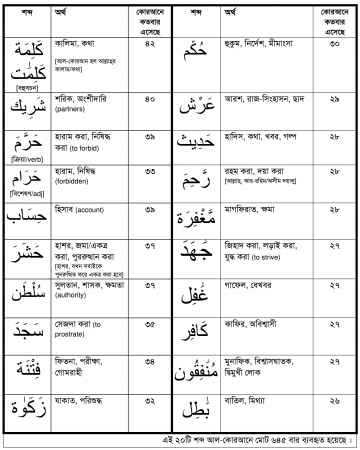 শব্দ অর্থ কোরআনে কতবার এসেছে শব্দ অর্থ কোরআনে কতবার এসেছে
كَلِمَة كَلِمٰت [বহুবচন] কালিমা, কথা [আল-কোরআন হল আল্লাহ্‌র কালাম/কথা] ৪২ حُكْم হুকুম, নির্দেশ, মীমাংসা ৩০
شَرِيك শরিক, অংশীদারি (partners) ৪০ عَرْش আরশ, রাজ-সিংহাসন, ছাদ ২৯
حَرَّمَ [ক্রিয়া/verb] হারাম করা, নিষিদ্ধ করা (to forbid) ৩৯ حَدِيث হাদিস, কথা, খবর, গল্প ২৮
حَرَام [বিশেষণ/adj] হারাম, নিষিদ্ধ (forbidden) ৩৩ رَّحِمَ রহম করা, দয়া করা [আল্লাহ, আর-রহিম/অসীম দয়ালু] ২৮
حِسَاب হিসাব (account) ৩৯ مَّغْفِرَة মাগফিরাত, ক্ষমা ২৮
حَشَرَ হাশর, জমা/একত্র করা, পুনরুত্থান করা [হাশর, যখন সবাইকে পুনরুত্থিত করে একত্র করা হবে] ৩৭ جَٰهَدَ জিহাদ করা, লড়াই করা, যুদ্ধ করা (to strive) ২৭
سُلْطَٰن সুলতান, শাসক, ক্ষমতা (authority) ৩৭ غَٰفِل গাফেল, বেখবর ২৭
سَجَدَ সেজদা করা (to prostrate) ৩৫ كَافِر কাফির, অবিশ্বাসী ২৭
فِتْنَة ফিতনা, পরীক্ষা, গোমরাহী ৩৪ مُنَٰفِقُون মুনাফিক, বিশ্বাসঘাতক, দ্বিমুখী লোক ২৭
زَكَوٰة যাকাত, পরিশুদ্ধ ৩২ بَٰطِل বাতিল, মিথ্যা ২৬
এই ২০টি শব্দ আল-কোরআনে মোট ৬৪৫ বার ব্যবহৃত হয়েছে ।